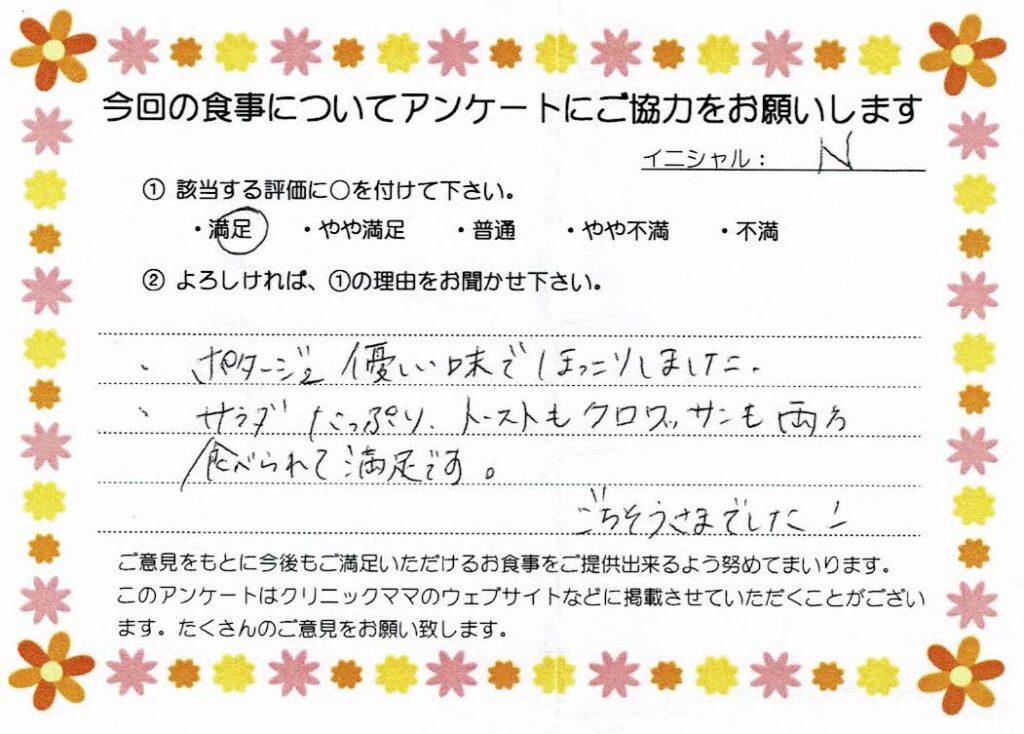 今回の食事についてアンケートにご協力をお願いします
イニシャル： N
① 該当する評価に○を付けて下さい。
・満足 ・やや満足 ・普通 ・やや不満 ・不満
② よろしければ、①の理由をお聞かせ下さい。
、ポタージュ 優しい味でほっこりしました。
、サラダ たっぷり、トーストもクロワッサンも両方
食べられて満足です。
ごちそうさまでした！
ご意見をもとに今後もご満足いただけるお食事をご提供出来るよう努めてまいります。
このアンケートはクリニックママのウェブサイトなどに掲載させていただくことがござい
ます。たくさんのご意見をお願い致します。